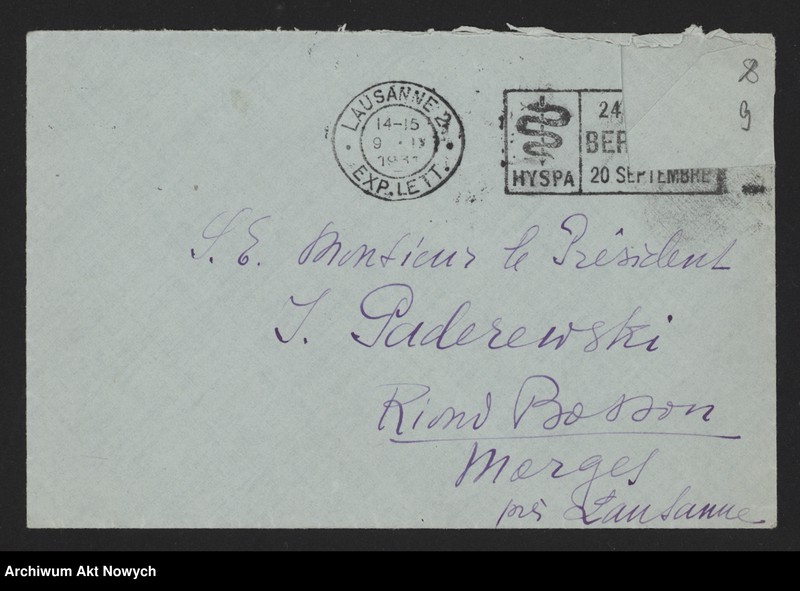 8
9
LAUSANNE 2
14-15
9 · IX
1931
EXP. LETT.
24
BER
HYSPA
20 SEPTEMBRE
S. E. Monsieur le Président
I. Paderewski
Riond Bosson
Morges
près Lausanne
Archiwum Akt Nowych